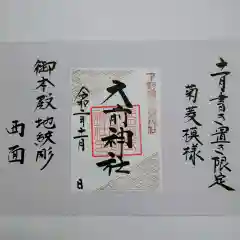 十一月書き置き限定
菊菱模様
大前神社
令和二年十一月 日
御本殿地紋彫
西面